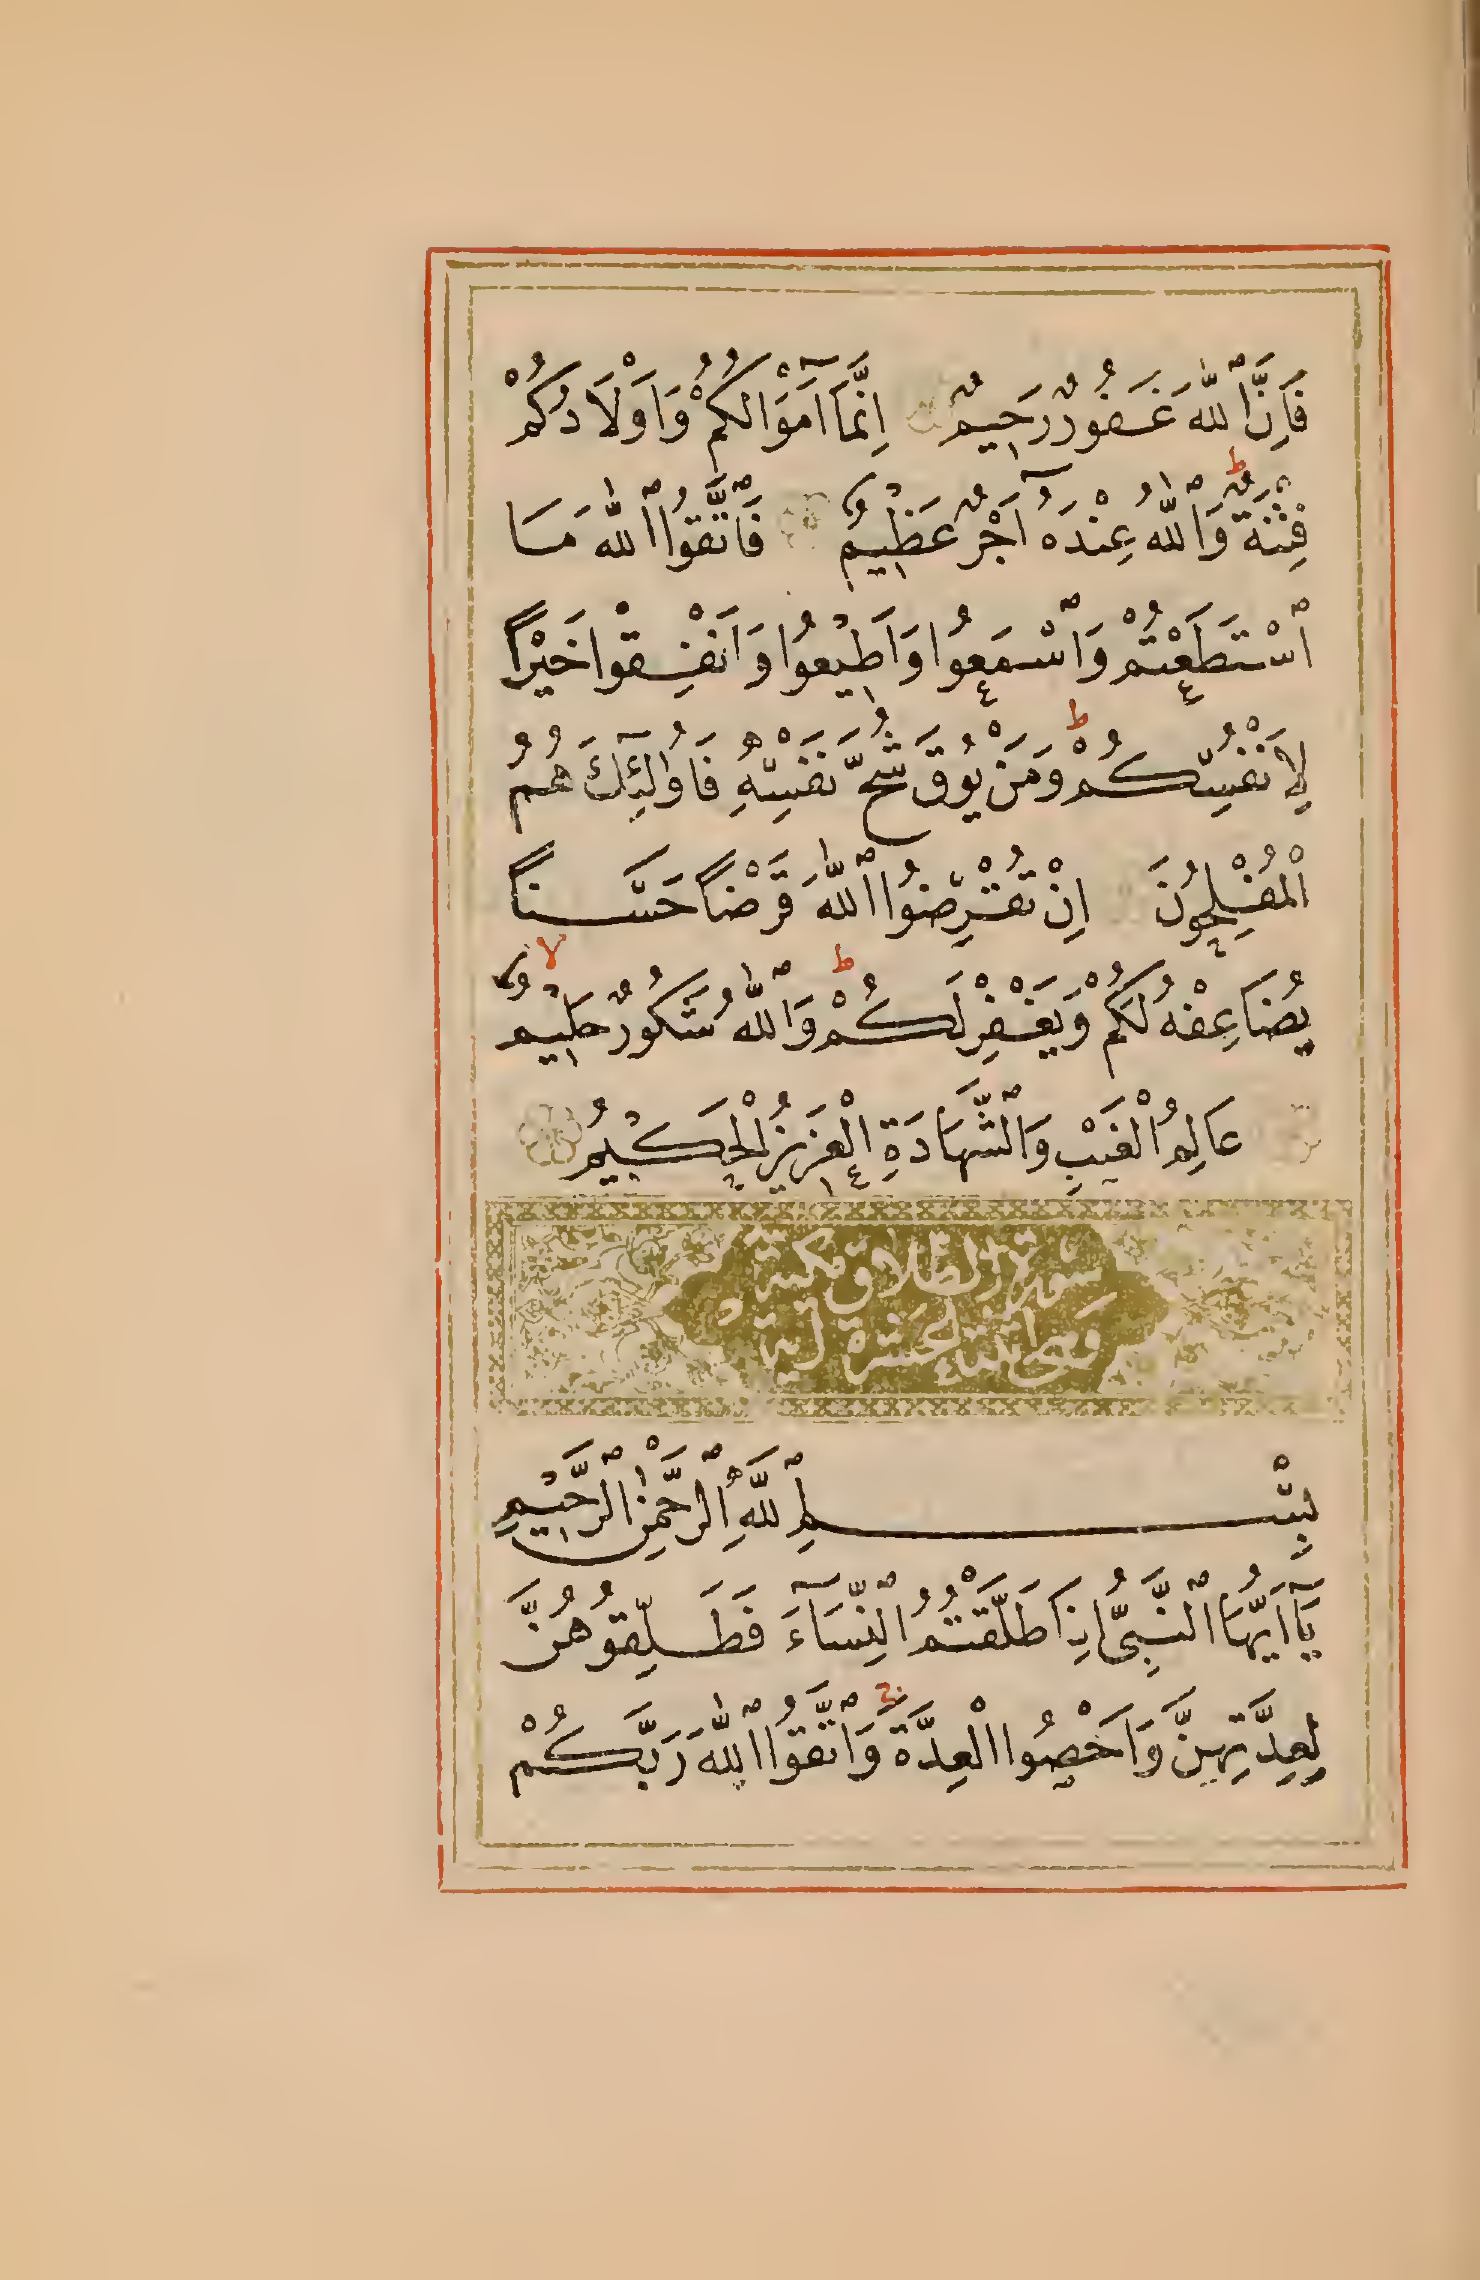 فَاِنَّ ٱللّٰهَ غَفُورٌ رَحِيمٌ اِنَّمَآ اَمْوَالُكُمْ وَاَوْلَادُكُمْ
فِتْنَةٌ ط وَٱللّٰهُ عِنْدَهُٓ اَجْرٌ عَظِيمٌ فَٱتَّقُوا ٱللّٰهَ مَا
ٱسْتَطَعْتُمْ وَٱسْمَعُوا وَاَطِيعُوا وَاَنْفِقُوا خَيْرًا
لِاَنْفُسِكُمْ ط وَمَنْ يُوقَ شُحَّ نَفْسِهِ فَاُولٰٓئِكَ هُمُ
الْمُفْلِحُونَ اِنْ تُقْرِضُوا ٱللّٰهَ قَرْضًا حَسَنًا
يُضَاعِفْهُ لَكُمْ وَيَغْفِرْ لَكُمْ ط وَٱللّٰهُ شَكُورٌ حَلِيمٌ لا
عَالِمُ الْغَيْبِ وَٱلشَّهَادَةِ الْعَزِيزُ الْحَكِيمُ
سورة الطلاق مكية
وهى اثنتا عشرة اية
بِسْمِ ٱللّٰهِ ٱلرَّحْمٰنِ ٱلرَّحِيمِ
يَآ اَيُّهَا ٱلنَّبِىُّ اِذَا طَلَّقْتُمُ ٱلنِّسَآءَ فَطَلِّقُوهُنَّ
لِعِدَّتِهِنَّ وَاَحْصُوا الْعِدَّةَ ج وَٱتَّقُوا ٱللّٰهَ رَبَّكُمْ